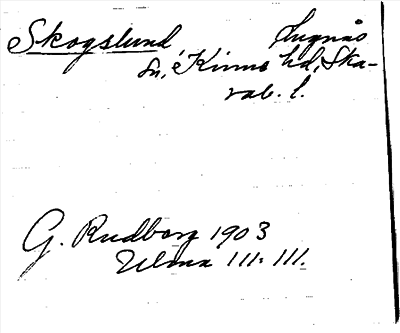 Skogslund Lugnås
sn, Kinne hd, Ska-
rab. l.
G. Rudberg 1903
Ulma III: III.